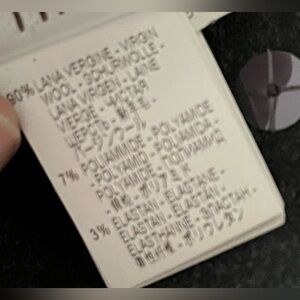 90% LANA VERGINE - VIRGIN
WOOL - SCHURWOLLE -
LANA VIRGEN - LAINE
VIERGE - ЧИСТАЯ
ШЕРСТЬ -
バージンウール
7% POLIAMMIDE - POLYAMIDE
- POLYAMID - POLIAMIDA -
POLYAMIDE - ПОЛИАМИД
- ポリアミド
3% ELASTAN - ELASTANE -
ELASTAN - ELASTAN -
ELASTHANNE - ЭЛАСТАН -
- ポリウレタン